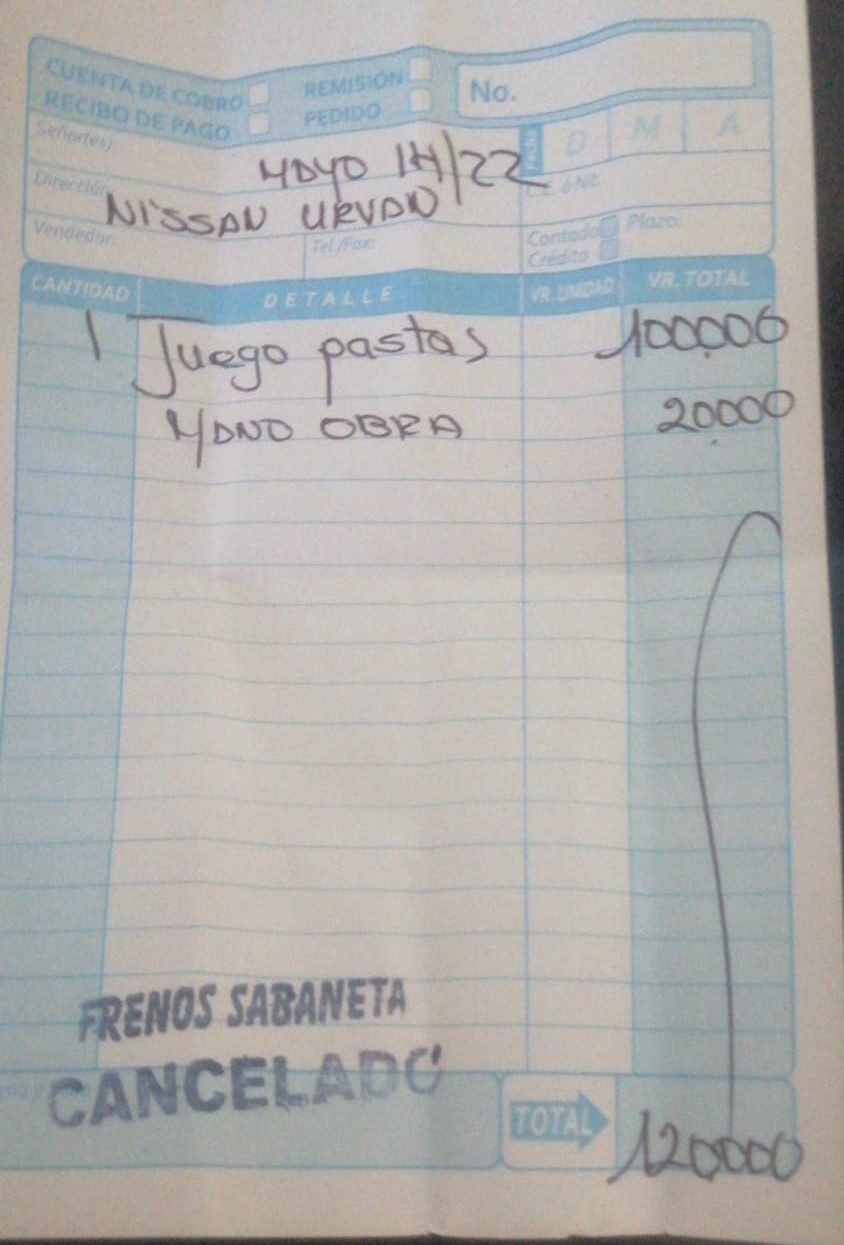 CUENTA DE COBRO REMISIÓN No.
RECIBO DE PAGO PEDIDO
Señor(es): Fecha D M A
MAYO 14/22
Dirección: C.C. ó Nit.
NISSAN URVAN
Vendedor: Tel./Fax: Contado Plazo:
Crédito
CANTIDAD DETALLE VR. UNIDAD VR. TOTAL
1 Juego pastas 100.000
MANO OBRA 20.000
FRENOS SABANETA
CANCELADO
TOTAL 120000